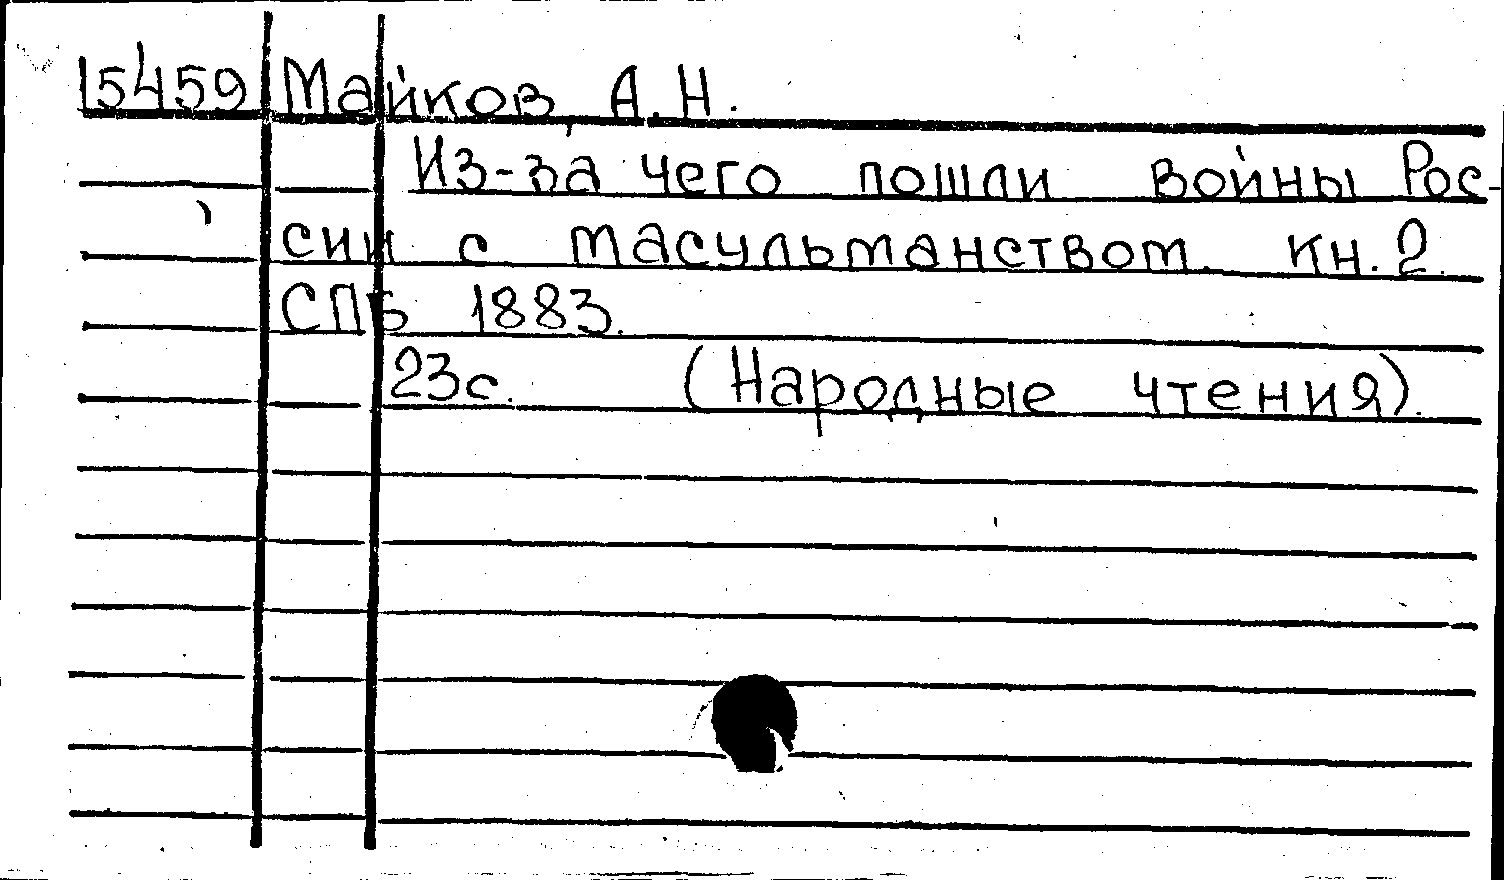 15459 Майков, А.Н.
Из-за чего пошли войны Рос-
сии с масульманством. кн. 2.
СПБ 1883.
23с. (Народные чтения).